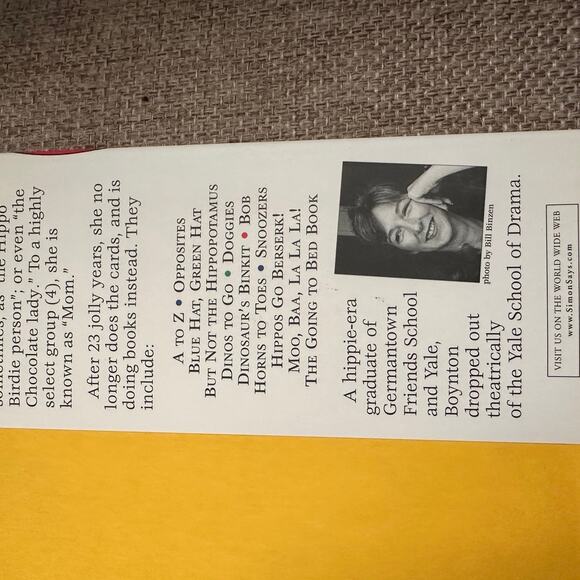 sometimes, as "the Hippo
Birdie person"; or even "the
Chocolate lady." To a highly
select group (4), she is
known as "Mom."
After 23 jolly years, she no
longer does the cards, and is
doing books instead. They
include:
A TO Z • OPPOSITES
BLUE HAT, GREEN HAT
BUT NOT THE HIPPOPOTAMUS
DINOS TO GO • DOGGIES
DINOSAUR'S BINKIT • BOB
HORNS TO TOES • SNOOZERS
HIPPOS GO BERSERK!
MOO, BAA, LA LA LA!
THE GOING TO BED BOOK
A hippie-era
graduate of
Germantown
Friends School
and Yale,
Boynton
dropped out
theatrically
of the Yale School of Drama.
photo by Bill Binzen
VISIT US ON THE WORLD WIDE WEB
www.SimonSays.com